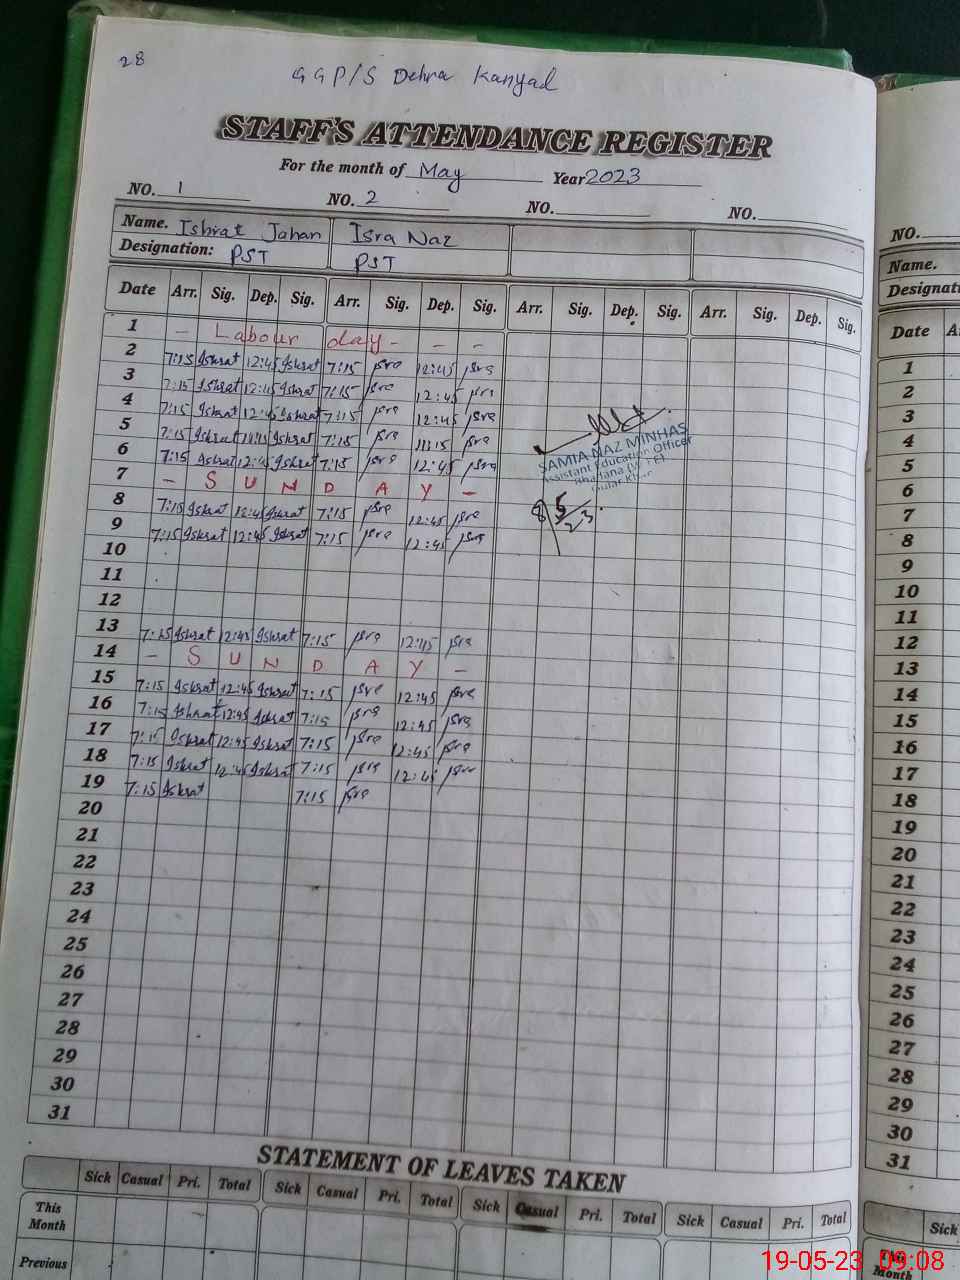 28
GGP/S Dehra Kanyad
STAFF'S ATTENDANCE REGISTER
For the month of May Year 2023
NO. 1 NO. 2 NO. NO.
Name. Ishrat Jahan Isra Naz
Designation: PST PST
Date Arr. Sig. Dep. Sig. Arr. Sig. Dep. Sig. Arr. Sig. Dep. Sig. Arr. Sig. Dep. Sig.
1 - Labour day - - -
2 7:15 Ishrat 12:45 Ishrat 7:15 Isra 12:45 Isra
3 7:15 Ishrat 12:45 Ishrat 7:15 Isra 12:45 Isra
4 7:15 Ishrat 12:45 Ishrat 7:15 Isra 12:45 Isra
5 7:15 Ishrat 11:15 Ishrat 7:15 Isra 11:15 Isra
6 7:15 Ishrat 12:45 Ishrat 7:15 Isra 12:45 Isra
7 - S U N D A Y -
8 7:15 Ishrat 12:45 Ishrat 7:15 Isra 12:45 Isra
9 7:15 Ishrat 12:45 Ishrat 7:15 Isra 12:45 Isra
10
11
12
13 7:15 Ishrat 12:45 Ishrat 7:15 Isra 12:45 Isra
14 - S U N D A Y -
15 7:15 Ishrat 12:45 Ishrat 7:15 Isra 12:45 Isra
16 7:15 Ishrat 12:45 Ishrat 7:15 Isra 12:45 Isra
17 7:15 Ishrat 12:45 Ishrat 7:15 Isra 12:45 Isra
18 7:15 Ishrat 12:45 Ishrat 7:15 Isra 12:45 Isra
19 7:15 Ishrat 7:15 Isra
20
21
22
23
24
25
26
27
28
29
30
31
SAMIA NAZ MINHAS
Assistant Education Officer
8/5/23.
STATEMENT OF LEAVES TAKEN
Sick Casual Pri. Total Sick Casual Pri. Total Sick Casual Pri. Total Sick Casual Pri. Total
This Month
Previous
NO.
Name.
Designati
Date A
1
2
3
4
5
6
7
8
9
10
11
12
13
14
15
16
17
18
19
20
21
22
23
24
25
26
27
28
29
30
31
Sick
This Month
19-05-23 09:08